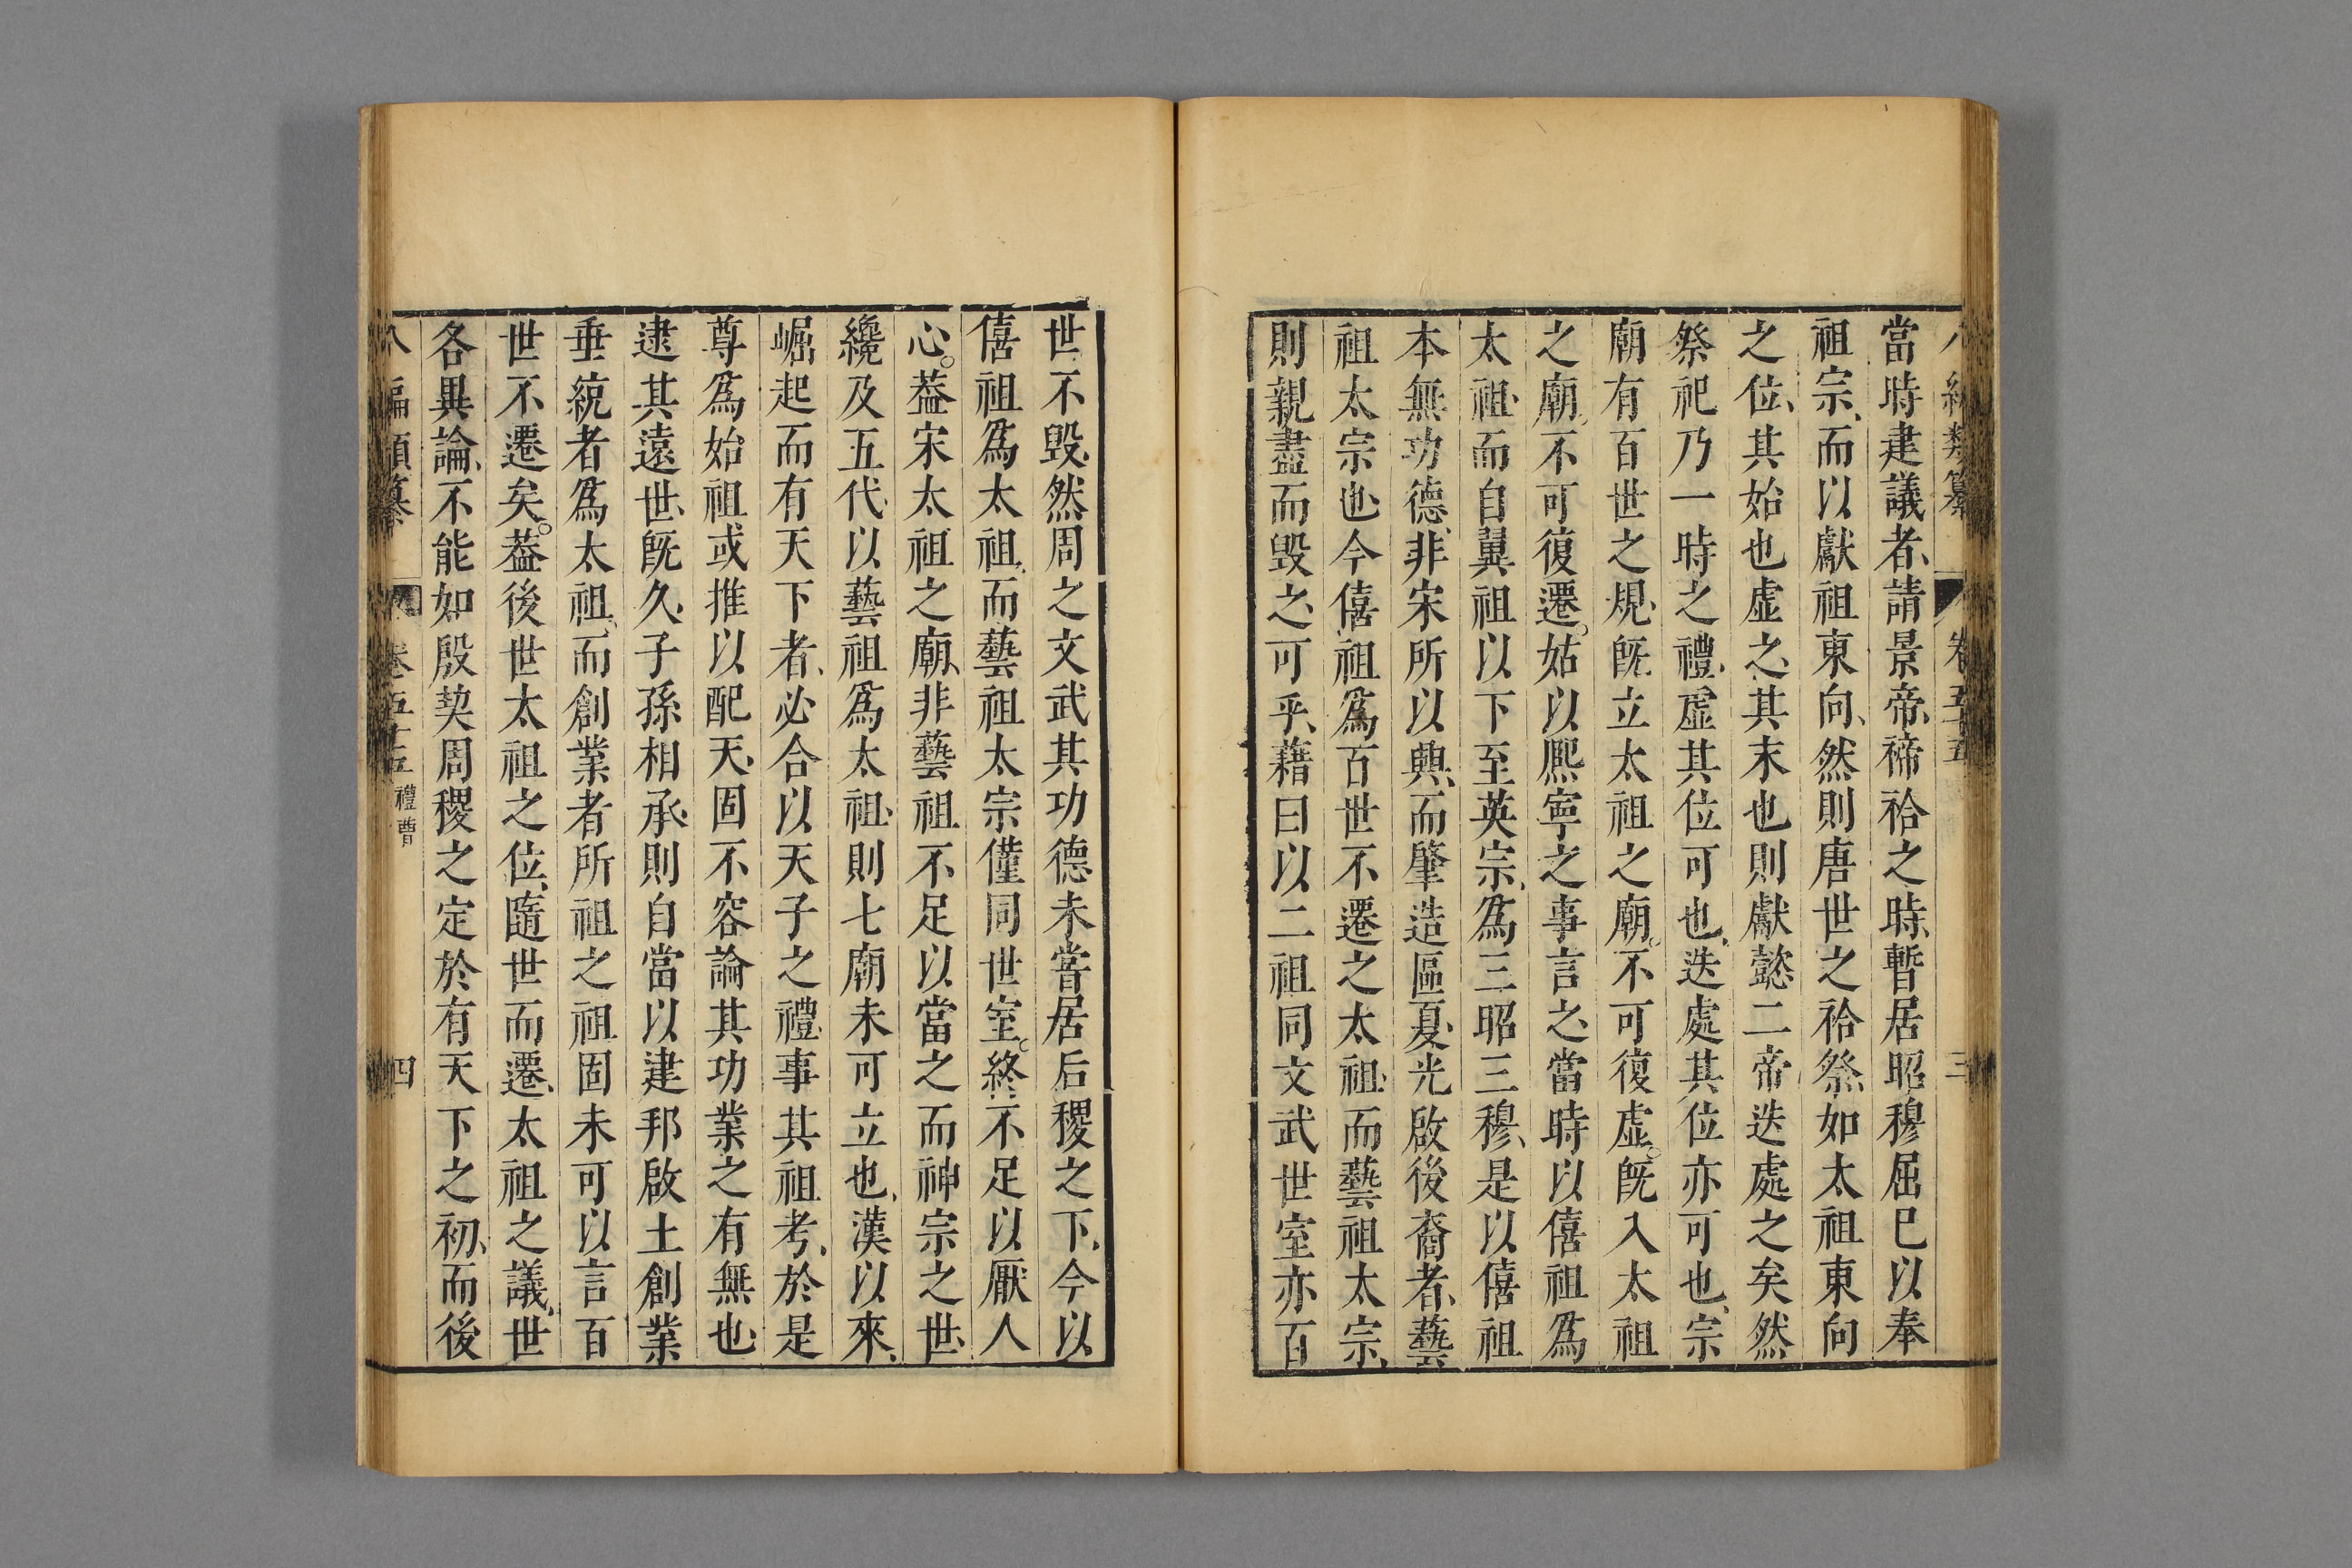 八編類纂 卷五十五 三
當時建議者、請景帝、禘祫之時、暫居昭穆屈巳以奉
祖宗、而以獻祖東向、然則唐世之祫祭、如太祖東向
之位、其始也虛之、其末也則獻懿二帝迭處之矣然
祭祀乃一時之禮、虛其位可也、迭處其位亦可也、宗
廟有百世之規、旣立太祖之廟。不可復虛。旣入太祖
之廟、不可復遷。姑以熈寧之事言之、當時以僖祖爲
太祖、而自翼祖以下至英宗、爲三昭三穆、是以僖祖
本無功德、非宋所以興、而肇造區夏、光啟後裔者、藝
祖太宗也、今僖祖爲百世不遷之太祖、而藝祖太宗、
則親盡而毀之、可乎、藉曰以二祖同文武世室亦百
世不毀、然周之文武其功德未嘗居后稷之下、今以
僖祖爲太祖、而藝祖太宗僅同世室。終不足以厭人
心。葢宋太祖之廟、非藝祖不足以當之而神宗之世、
纔及五代、以藝祖爲太祖、則七廟未可立也、漢以來、
崛起而有天下者、必合以天子之禮、事其祖考、於是
尊爲始祖或推以配天、固不容論其功業之有無也、
逮其遠世、旣久、子孫相承、則自當以建邦啟土創業
垂統者爲太祖、而創業者所祖之祖固未可以言百
世不遷矣。葢後世太祖之位、隨世而遷、太祖之議、世
各異論、不能如殷契周稷之定於有天下之初、而後
八編類纂 卷五十五 禮曹 四